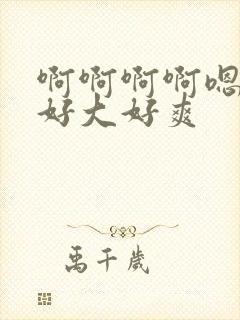 啊啊啊啊嗯
好大好爽
禹千岁